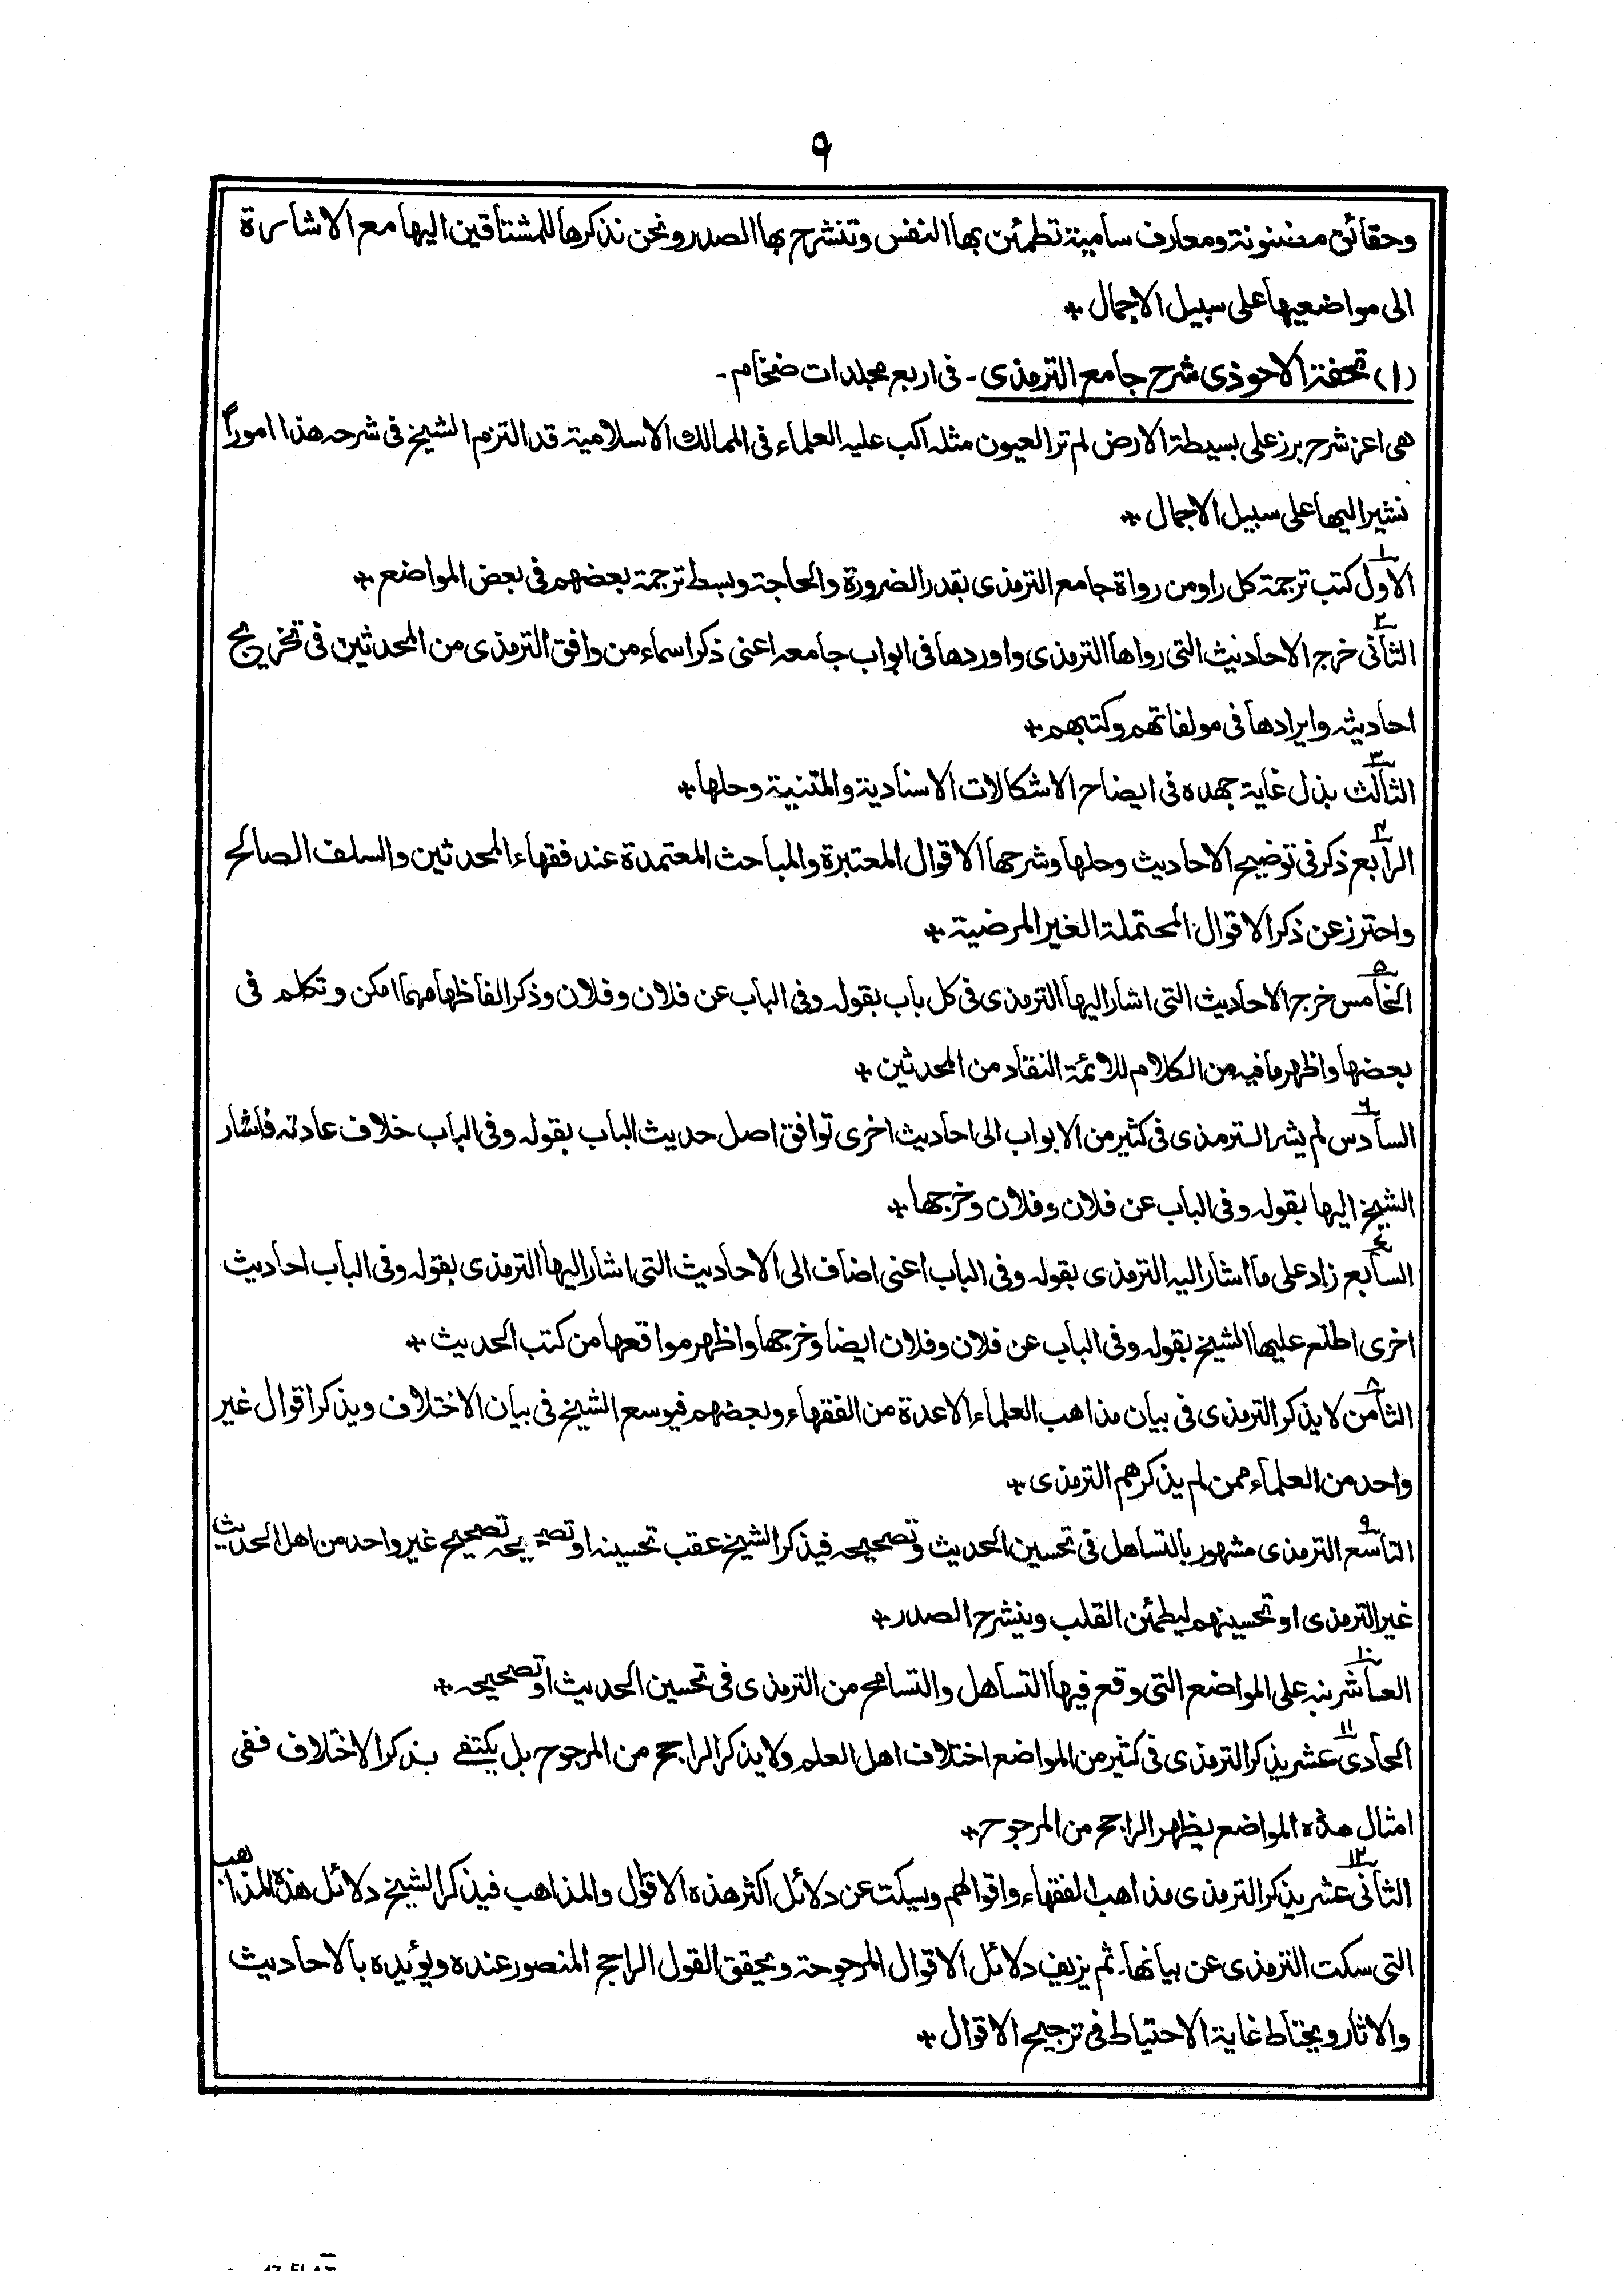 ٩
وحقائق مضنونة ومعارف سامية تطمئن بها النفس وتنشرح بها الصدر ونحن نذكرها للمشتاقين اليها مع الاشارة
الى مواضعيها على سبيل الاجمال *
(١) تحفة الاحوذى شرح جامع الترمذى - فى اربع مجلدات ضخام -
هى اعز شرح برز على بسيطة الارض لم تر العيون مثله اكب عليه العلماء فى الممالك الاسلامية قد التزم الشيخ فى شرحه هذا اموراً
نشير اليها على سبيل الاجمال *
١ الاول كتب ترجمة كل راو من رواة جامع الترمذى بقدر الضرورة والحاجة وبسط ترجمة بعضهم فى بعض المواضع *
٢ الثانى خرج الاحاديث التى رواها الترمذى واوردها فى ابواب جامعه اعنى ذكر اسماء من وافق الترمذى من المحدثين فى تخريج
احاديثه وايرادها فى مولفاتهم وكتبهم *
٣ الثالث بذل غاية جهده فى ايضاح الاشكالات الاسنادية والمتنية وحلها *
٤ الرابع ذكر فى توضيح الاحاديث وحلها وشرحها الاقوال المعتبرة والمباحث المعتمدة عند فقهاء المحدثين والسلف الصالح
واحترز عن ذكر الاقوال المحتملة الغير المرضية *
٥ الخامس خرج الاحاديث التى اشار اليها الترمذى فى كل باب بقوله وفى الباب عن فلان وفلان وذكر الفاظها مهما امكن وتكلم فى
بعضها واظهر ما فيه من الكلام للائمة النقاد من المحدثين *
٦ السادس لم يشر الترمذى فى كثير من الابواب الى احاديث اخرى توافق اصل حديث الباب بقوله وفى الباب خلاف عادته فاشار
الشيخ اليها بقوله وفى الباب عن فلان وفلان وخرجها *
٧ السابع زاد على ما اشار اليه الترمذى بقوله وفى الباب اعنى اضاف الى الاحاديث التى اشار اليها الترمذى بقوله وفى الباب احاديث
اخرى اطلع عليها الشيخ بقوله وفى الباب عن فلان وفلان ايضا وخرجها واظهر مواقعها من كتب الحديث *
٨ الثامن لا يذكر الترمذى فى بيان مذاهب العلماء الا عدة من الفقهاء وبعضهم فيوسع الشيخ فى بيان الاختلاف ويذكر اقوال غير
واحد من العلماء ممن لم يذكرهم الترمذى *
٩ التاسع الترمذى مشهور بالتساهل فى تحسين الحديث وتصحيحه فيذكر الشيخ عقب تحسينه او تصحيحه تصحيح غير واحد من اهل الحديث
غير الترمذى او تحسينهم ليطمئن القلب وينشرح الصدر *
١٠ العاشر نبه على المواضع التى وقع فيها التساهل والتسامح من الترمذى فى تحسين الحديث او تصحيحه *
١١ الحادى عشر يذكر الترمذى فى كثير من المواضع اختلاف اهل العلم ولا يذكر الراجح من المرجوح بل يكتفے بذكر الاختلاف ففى
امثال هذه المواضع يظهر الراجح من المرجوح *
١٢ الثانى عشر يذكر الترمذى مذاهب الفقهاء واقوالهم ويسكت عن دلائل اكثر هذه الاقوال والمذاهب فيذكر الشيخ دلائل هذه المذاهب
التى سكت الترمذى عن بيانها. ثم يزيف دلائل الاقوال المرجوحة ويحقق القول الراجح المنصور عنده ويؤيده بالاحاديث
والاثار ويحتاط غاية الاحتياط فى ترجيح الاقوال *